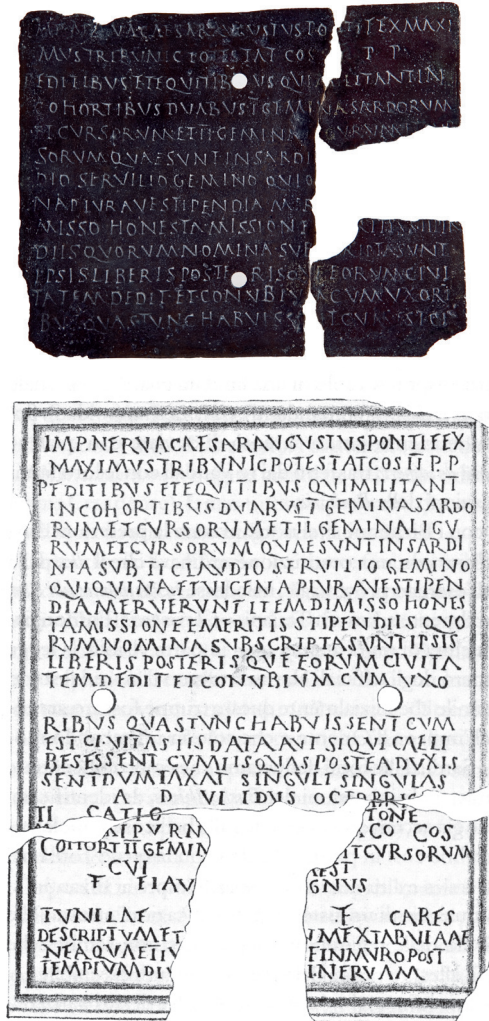 IMP NERVA CAESAR AVGVSTVS PONTIFEX MAXI
MVS TRIBVNIC POTESTAT COS II P P
PEDITIBVS ET EQVITIBVS QVI MILITANT IN
COHORTIBVS DVABVS I GEMINA SARDORVM
ET CVRSORVM ET II GEMINA
SORVM QVAE SVNT IN SARDI
DIO SERVILIO GEMINO QVI
NA PLVRAVE STIPENDIA MER
MISSO HONESTA MISSIONE
DIIS QVORVM NOMINA SVB
IPSIS LIBERIS POSTERISQ E EORVM CIVI
TATEM DEDIT ET CONVBIV CVM VXORI
BVS QVAS TVNC HABVISS T CVM EST CI
IMP. NERVA CAESAR AVGVSTVS PONTIFEX
MAXIMVS TRIBVNIC POTESTAT COS II P. P
PEDITIBVS ET EQVITIBVS QVI MILITANT
IN COHORTIBVS DVABVS I GEMINA SARDO
RVM ET CVRSORVM ET II GEMINA LIGV
RVM ET CVRSORVM QVAE SVNT IN SARDI
NIA SVB TI CLAVDIO SERVILIO GEMINO
QVI QVINA ET VICENA PLVRAVE STIPEN
DIA MERVERVNT ITEM DIMISSO HONES
TA MISSIONE EMERITIS STIPENDIIS QVO
RVM NOMINA SVBSCRIPTA SVNT IPSIS
LIBERIS POSTERISQVE EORVM CIVITA
TEM DEDIT ET CONVBIVM CVM VXO
RIBVS QVAS TVNC HABVISSENT CVM
EST CIVITAS IIS DATA AVT SIQVI CAELI
BES ESSENT CVM IIS QVAS POSTEA DVXIS
SENT DVMTAXAT SINGVLI SINGVLAS
A D VI IDVS OCTOBRIS
TI CATIO TONE
M CO COS
COHORT II GEMIN ET CVRSORVM
CVI AEST
F FLAV GNVS
TVNILAE F CARES
DESCRIPTVM ET VM EX TABVLA AE
NEA QVAE FI FIN MVRO POST
TEMPLVM DIV NERVAM